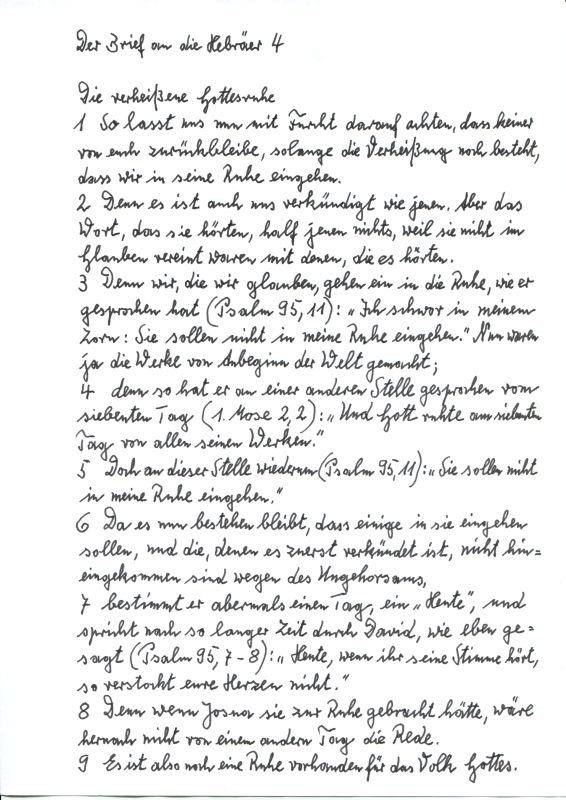 Der Brief an die Hebräer 4
Die verheißene Gottesruhe
1 So lasst uns nun mit Furcht darauf achten, dass keiner
von euch zurückbleibe, solange die Verheißung noch besteht,
dass wir in seine Ruhe eingehen.
2 Denn es ist auch uns verkündigt wie jenen. Aber das
Wort, das sie hörten, half jenen nichts, weil sie nicht im
Glauben vereint waren mit denen, die es hörten.
3 Denn wir, die wir glauben, gehen ein in die Ruhe, wie er
gesprochen hat (Psalm 95,11): „Ich schwor in meinem
Zorn: Sie sollen nicht in meine Ruhe eingehen.“ Nun waren
ja die Werke von Anbeginn der Welt gemacht;
4 denn so hat er an einer anderen Stelle gesprochen vom
siebenten Tag (1. Mose 2,2): „Und Gott ruhte am siebenten
Tag von allen seinen Werken.“
5 Doch an dieser Stelle wiederum (Psalm 95,11): „Sie sollen nicht
in meine Ruhe eingehen.“
6 Da es nun bestehen bleibt, dass einige in sie eingehen
sollen, und die, denen es zuerst verkündet ist, nicht hin=
eingekommen sind wegen des Ungehorsams,
7 bestimmt er abermals einen Tag, ein „Heute“, und
spricht nach so langer Zeit durch David, wie eben ge=
sagt (Psalm 95,7-8): „Heute, wenn ihr seine Stimme hört,
so verstockt eure Herzen nicht.“
8 Denn wenn Josua sie zur Ruhe gebracht hätte, wäre
hernach nicht von einem andern Tag die Rede.
9 Es ist also noch eine Ruhe vorhanden für das Volk Gottes.